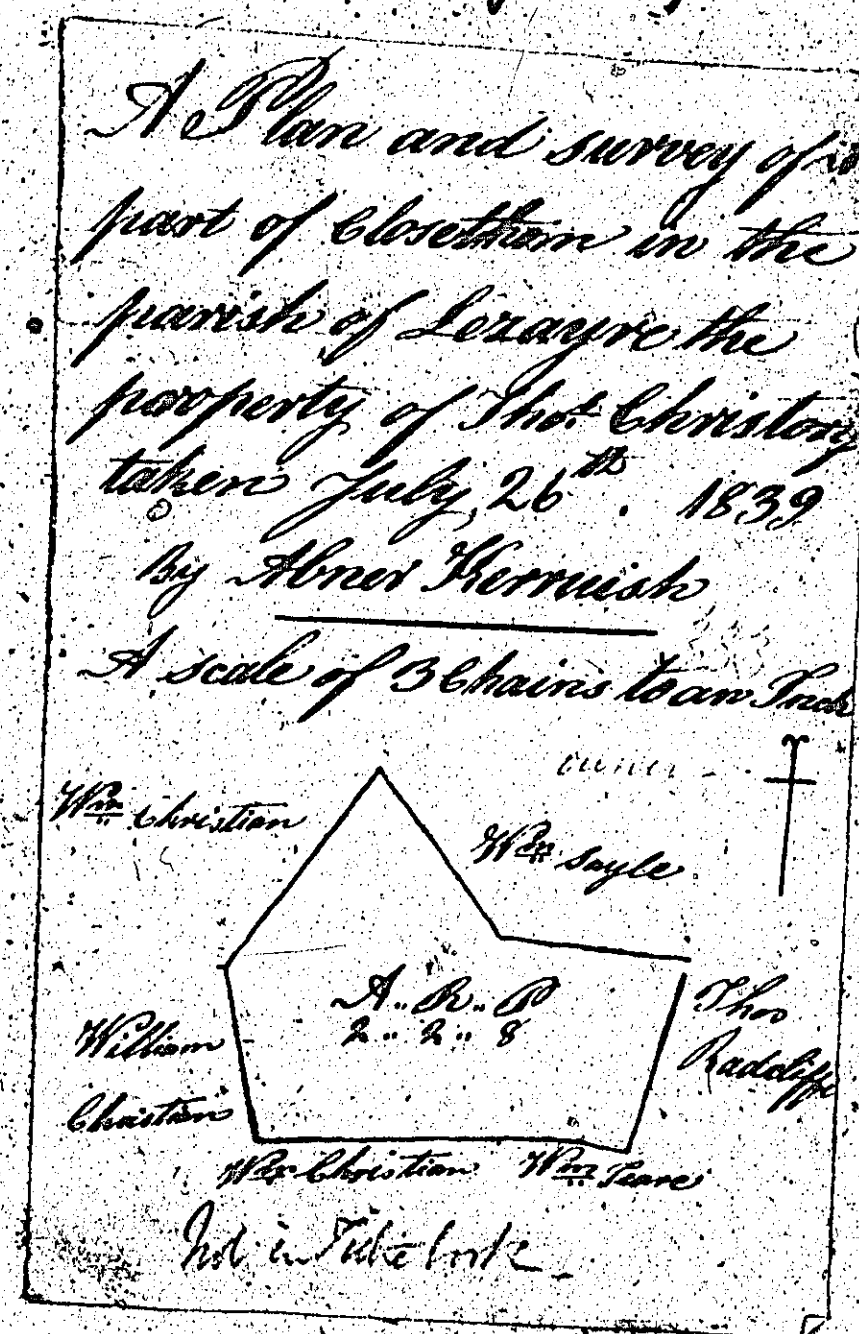 A Plan and survey of
part of Closethom in the
parish of Lezayre the
property of Thos. Christory
taken July 26th. 1839
By Abner Kerruish
A scale of 3 Chains to an Inch
owner
Wm Christian
Wm Sayle
A.. R.. P
2.. 2.. 8
Thos
Radcliffe
William
Christian
Wm Christian
Wm Teare
Not in